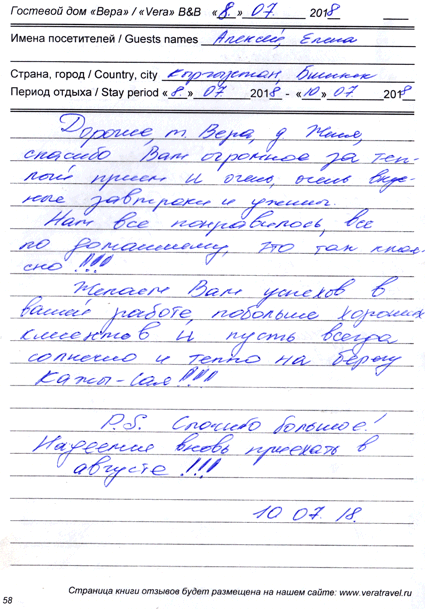 Гостевой дом «Вера» / «Vera» B&B «8» 07 2018
Имена посетителей / Guests names Алексей, Елена
Страна, город / Country, city Кыргызстан, Бишкек
Период отдыха / Stay period «8» 07 2018 - «10» 07 2018
Дорогие, т. Вера, д. Женя,
спасибо Вам огромное за теп-
лый прием и очень, очень вкус-
ные завтраки и ужины.
Нам все понравилось, все
по домашнему, это так клас-
сно !!!!
Желаем Вам успехов в
вашей работе, побольше хороших
клиентов и пусть всегда
солнечно и тепло на берегу
Кажы-Сая !!!!
P.S. Спасибо большое!
Надеемся вновь приехать в
августе !!!
10 07. 18.
58
Страница книги отзывов будет размещена на нашем сайте: www.veratravel.ru